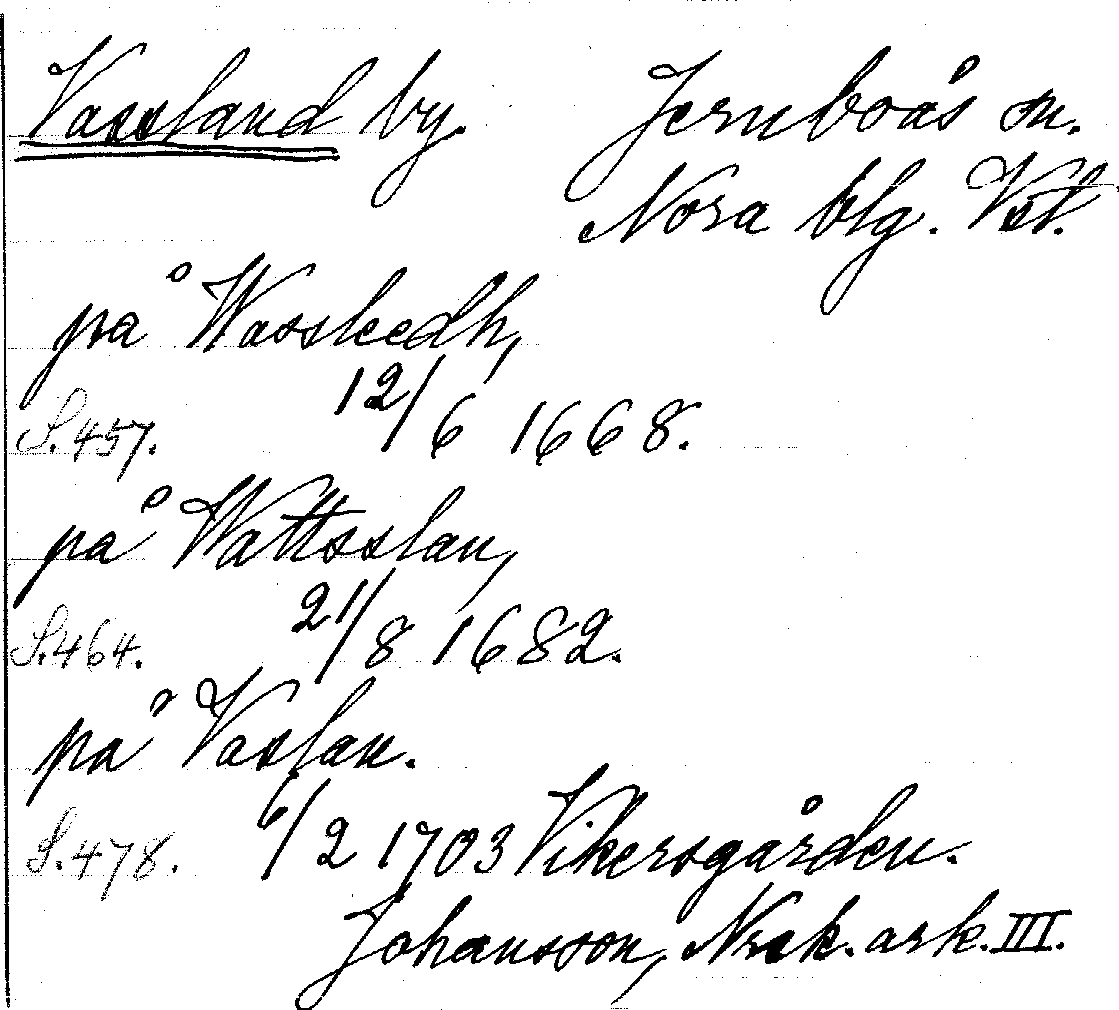 Vassland by. Jernboås sn.
Nora blg. Vstl.
på Wassleedh,
S. 457. 12/6 1668.
på Wattsslan,
S. 464. 21/8 1682.
på Vaslan.
S. 478. 6/2 1703 Vikersgården.
Johansson, Nrck. ark. III.